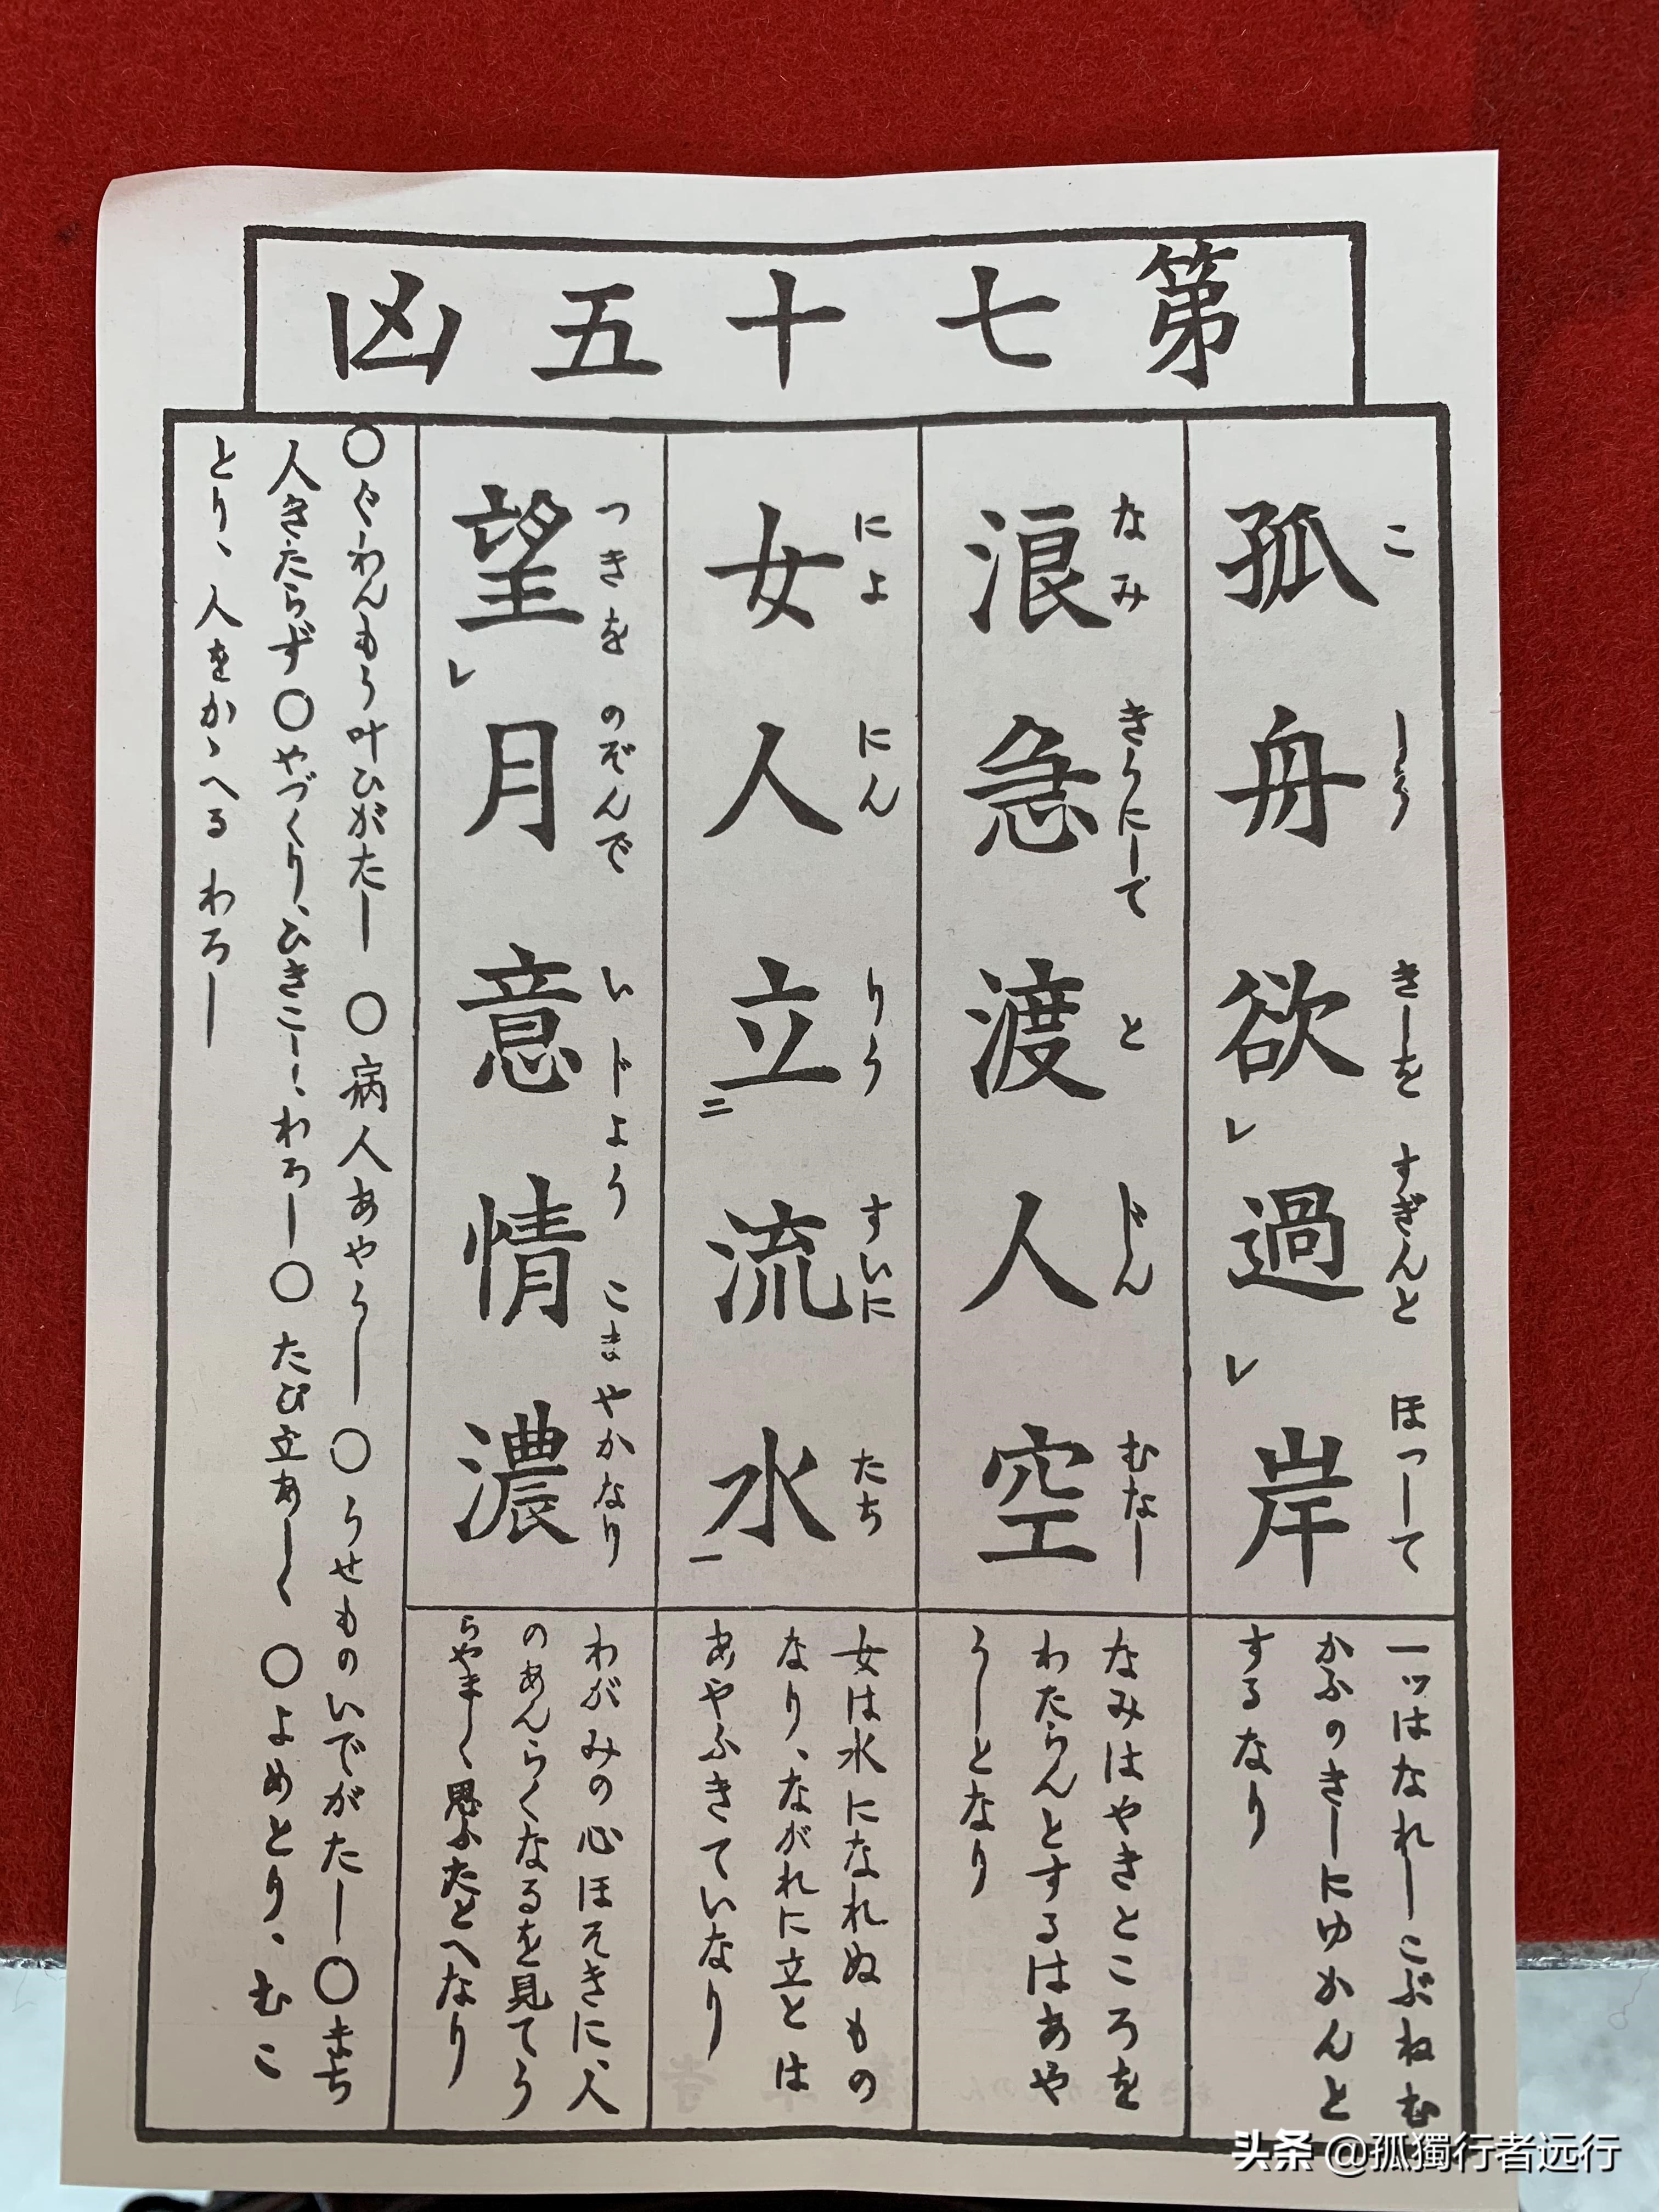 第七十五凶
孤舟欲過岸
こ しう きしを すぎんと ほつして
一ツはなれしこぶねむ
かふのきしにゆかんと
するなり
浪急渡人空
なみ きうにして と じん むなし
なみはやきところを
わたらんとするはあや
うしとなり
女人立流水
によ にん りう すいに たち
女は水になれぬもの
なり、ながれに立とは
あやふきていなり
望月意情濃
つきを のぞんで いじよう こまやかなり
わがみの心ほそきに、人
のあんらくなるを見てう
らやましく思ふたとへなり
〇ぐわんもう叶ひがたし 〇病人あやうし 〇うせものいでがたし 〇まち
人きたらず 〇やづくり、ひきこし、わろし 〇たび立あしく 〇よめとり、むこ
とり、人をかゝへるわろし
头条 @孤獨行者远行